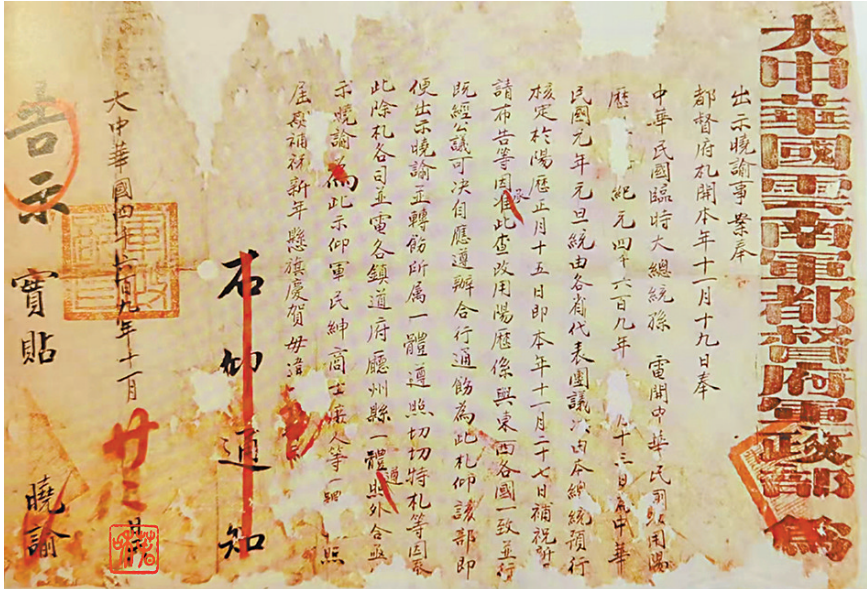 大中華國雲南軍都督府軍政部為
出示曉諭事案奉
都督府札開本年十一月十九日奉
中華民國臨時大總統孫 電開中華民國改用陽
歷 紀元四千六百九年 十三日為中華
民國元年元旦統由各省代表團議決由本總統預行
核定於陽歷正月十五日即本年十一月二十七日補祝新
請布告等因准承此查改用陽歷係與東西各國一致並行
既經公議可决自應遵辦合行通飭為此札仰該部即
便出示曉諭並轉飭所属一體遵照切切特札等因奉
此除札各日並電各鎮道府廳州縣一體遵照外合亟
示曉諭為此示仰軍民紳商士庶人等一體 照
屆期補祝新年懸旗慶賀毋違
右仰通知
大中華國四千六百九年十一月廿三日
告示 實貼 曉諭